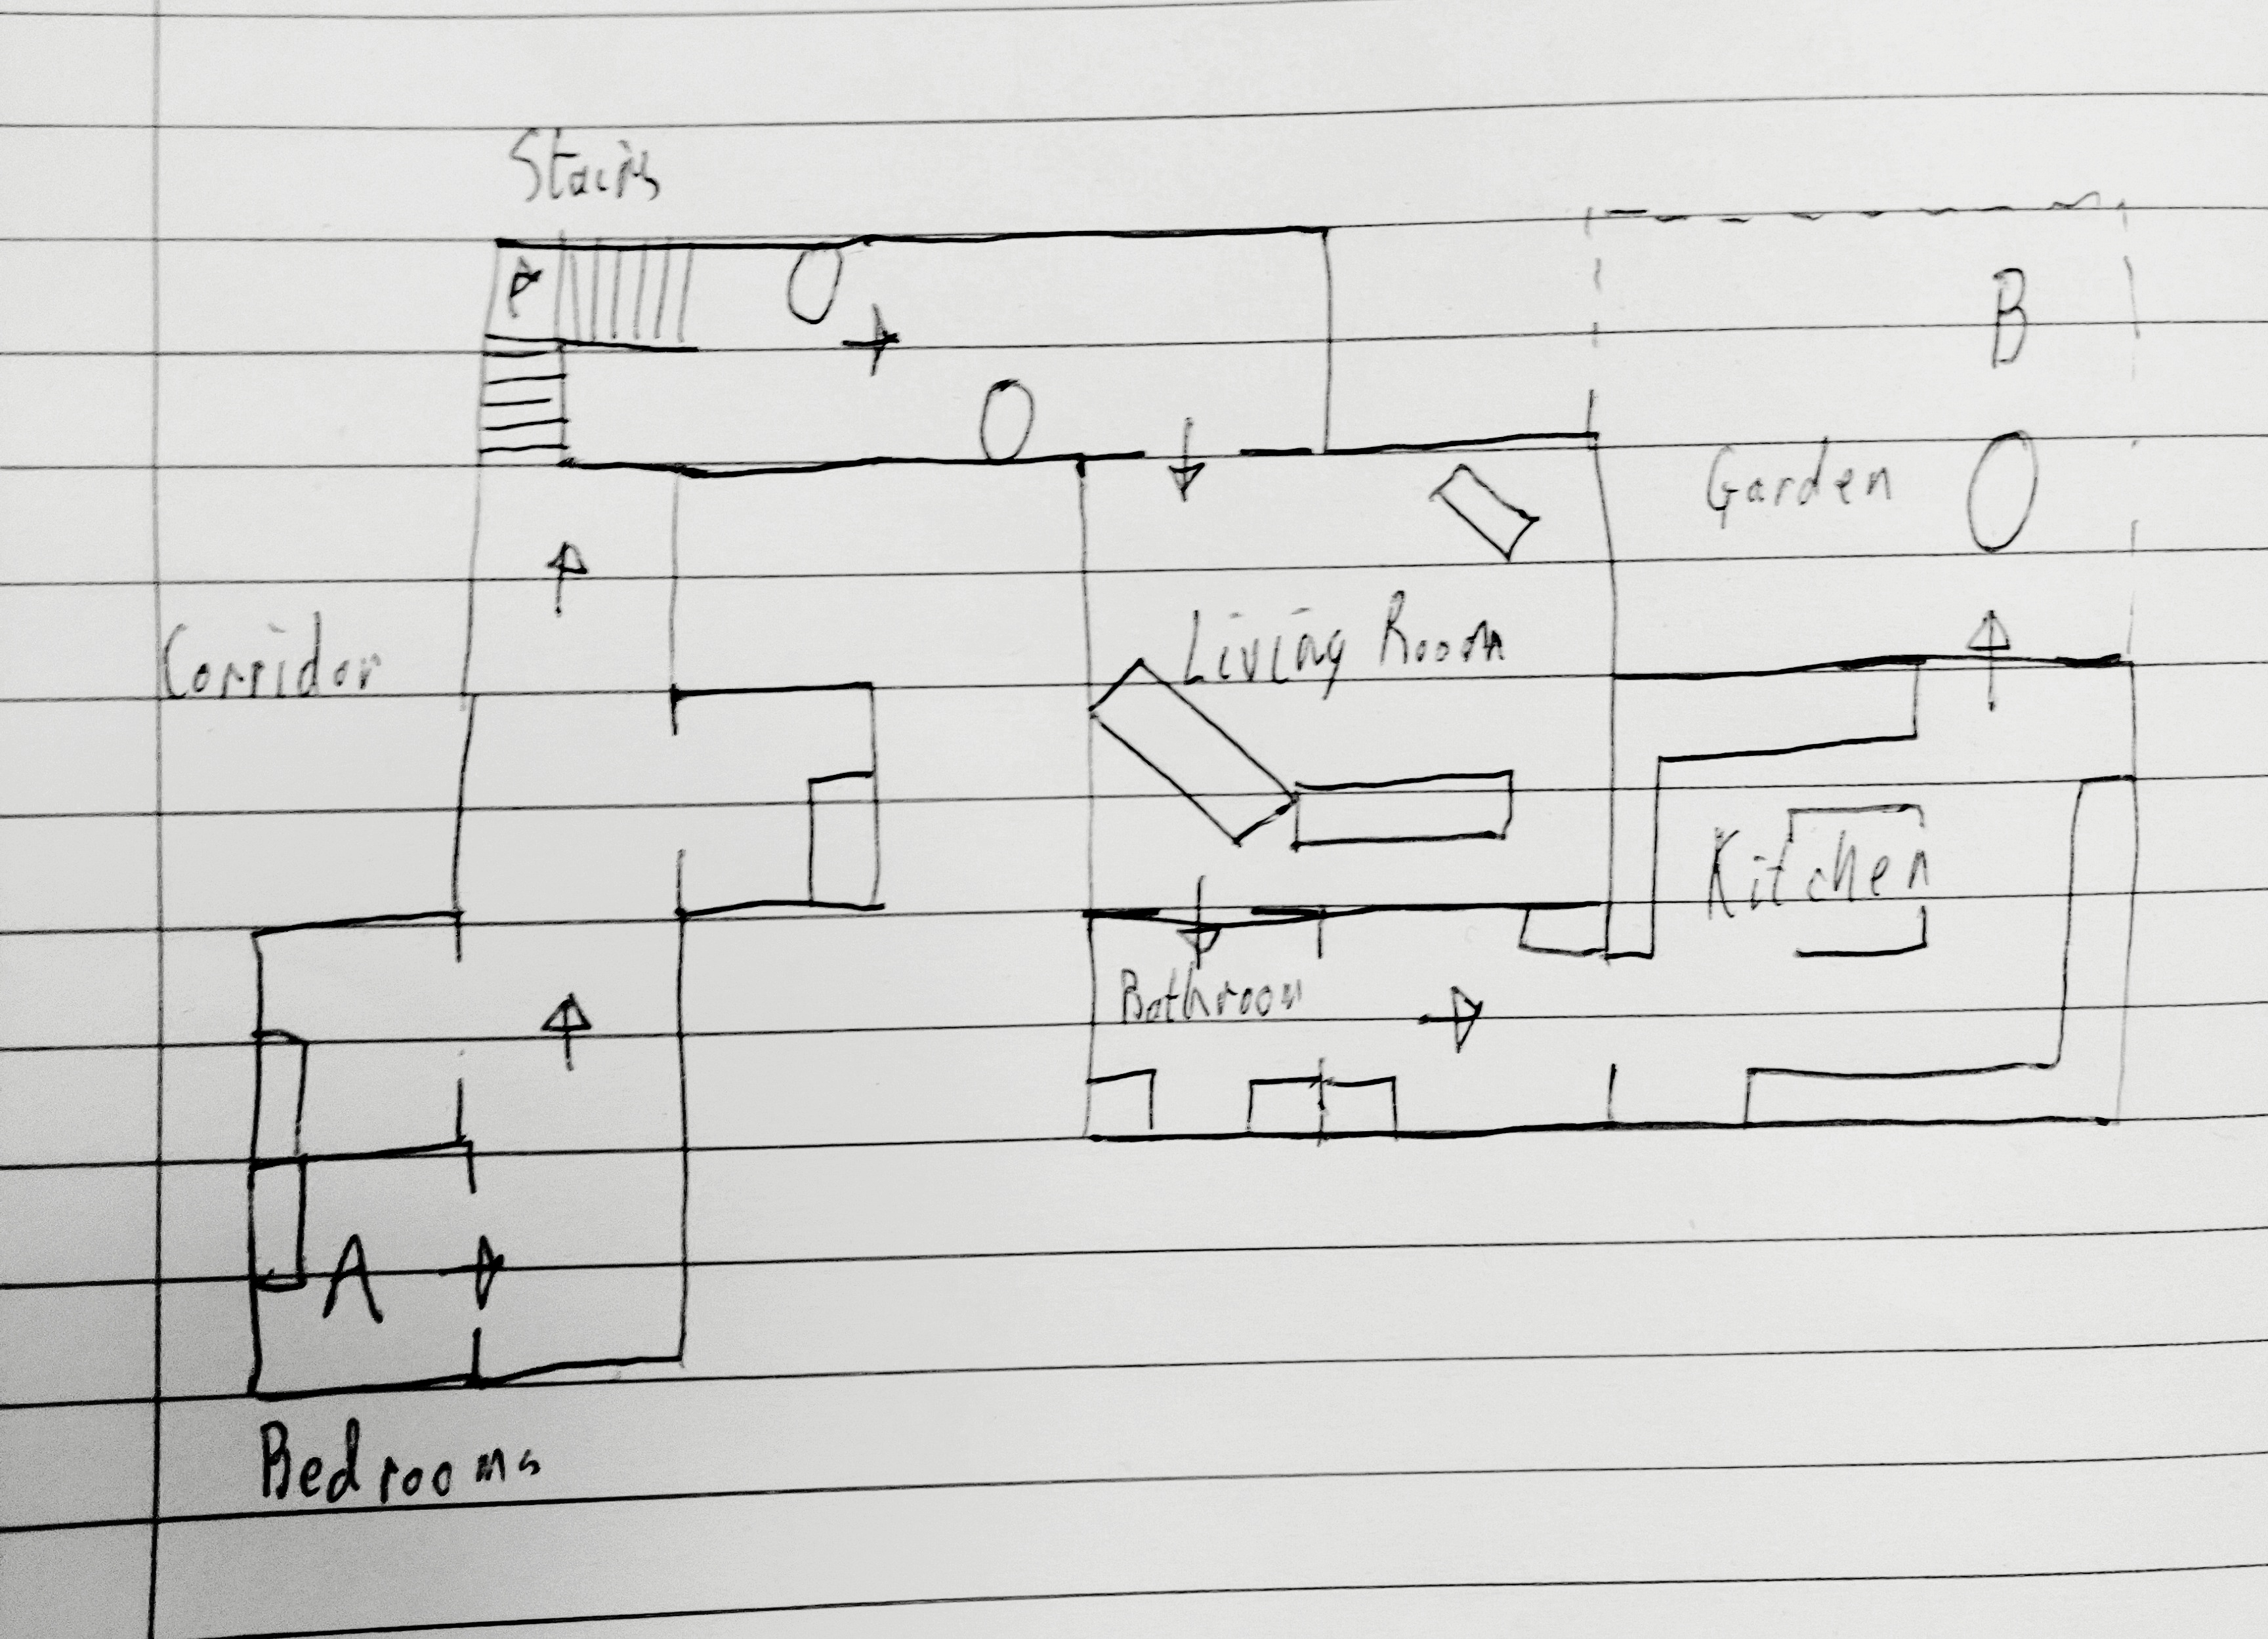 Stairs
B
Garden
Corridor
Living Room
Kitchen
Bathroom
A
Bedrooms